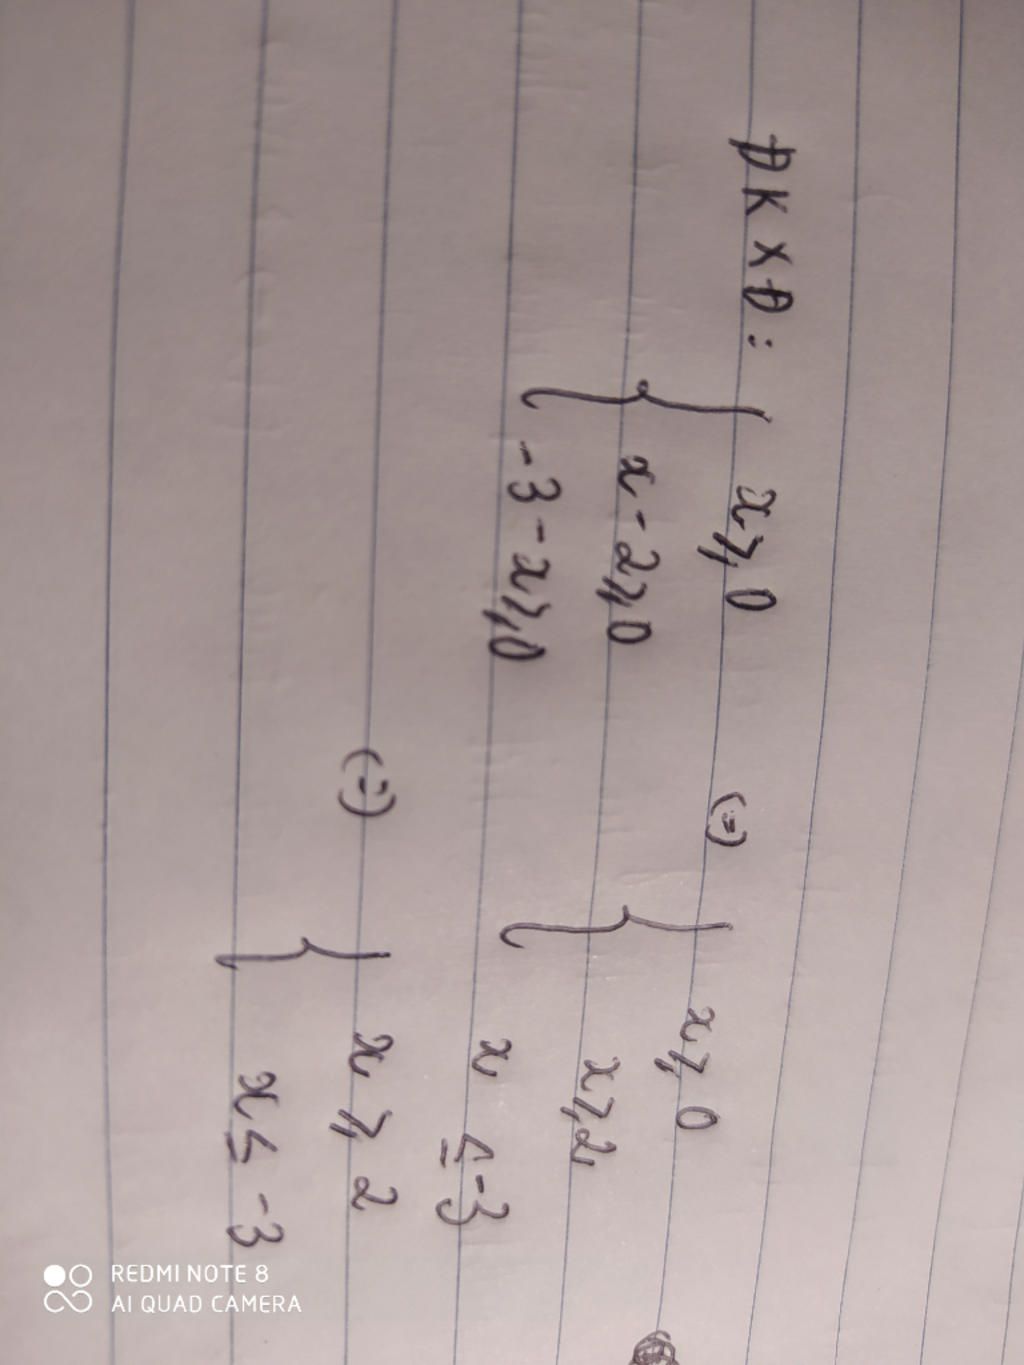 ĐKXĐ: { x ≥ 0
x - 2 ≥ 0
-3 - x ≥ 0
(=) { x ≥ 0
x ≥ 2
x ≤ -3
(=) { x ≥ 2
x ≤ -3
REDMI NOTE 8
AI QUAD CAMERA